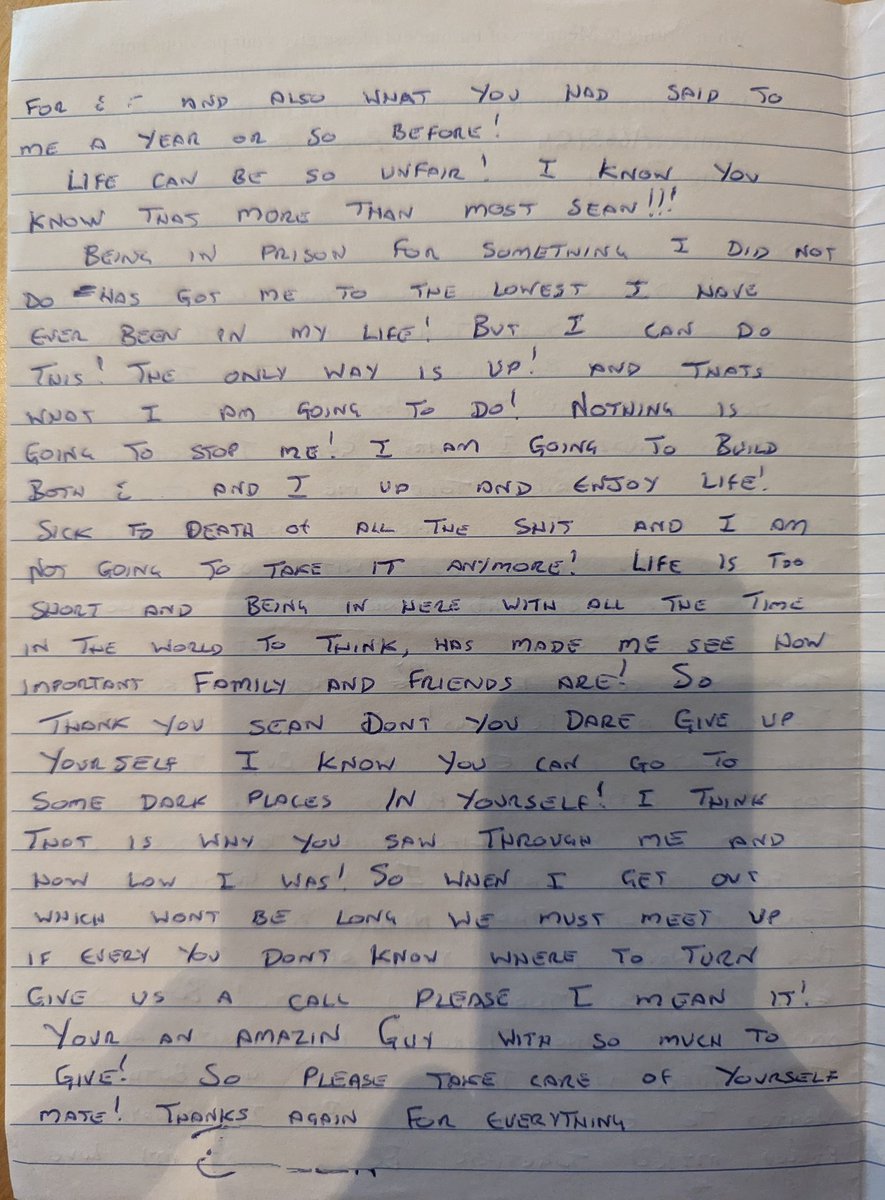 FOR & :- AND ALSO WHAT YOU HAD SAID TO
ME A YEAR OR SO BEFORE!
LIFE CAN BE SO UNFAIR! I KNOW YOU
KNOW THAT MORE THAN MOST SEAN!!!
BEING IN PRISON FOR SOMETHING I DID NOT
DO HAS GOT ME TO THE LOWEST I HAVE
EVER BEEN IN MY LIFE! BUT I CAN DO
THIS! THE ONLY WAY IS UP! AND THATS
WHAT I AM GOING TO DO! NOTHING IS
GOING TO STOP ME! I AM GOING TO BUILD
BOTH & AND I UP AND ENJOY LIFE!
SICK TO DEATH OF ALL THE SHIT AND I AM
NOT GOING TO TAKE IT ANYMORE! LIFE IS TOO
SHORT AND BEING IN HERE WITH ALL THE TIME
IN THE WORLD TO THINK, HAS MADE ME SEE HOW
IMPORTANT FAMILY AND FRIENDS ARE! SO
THANK YOU SEAN DONT YOU DARE GIVE UP
YOURSELF I KNOW YOU CAN GO TO
SOME DARK PLACES IN YOURSELF! I THINK
THAT IS WHY YOU SAW THROUGH ME AND
HOW LOW I WAS! SO WHEN I GET OUT
WHICH WONT BE LONG WE MUST MEET UP
IF EVERY YOU DONT KNOW WHERE TO TURN
GIVE US A CALL PLEASE I MEAN IT!
YOUR AN AMAZIN GUY WITH SO MUCH TO
GIVE! SO PLEASE TAKE CARE OF YOURSELF
MATE! THANKS AGAIN FOR EVERYTHING